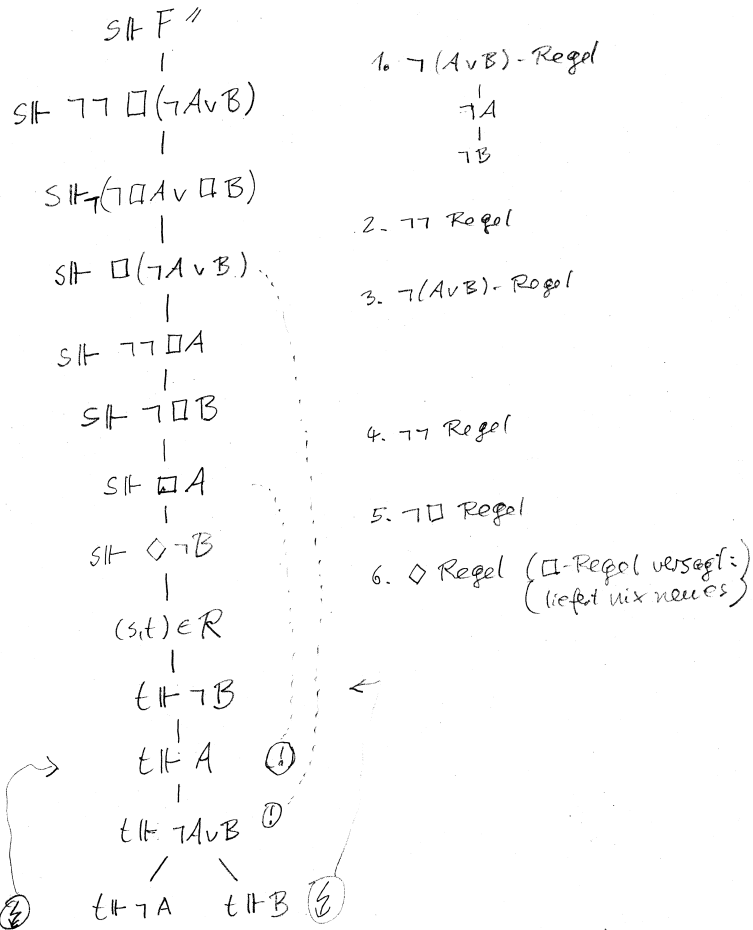 s⊩ F"
s⊩ ¬¬ □(¬A∨B)
s⊩¬(¬□A ∨ □B)
s⊩ □(¬A∨B)
s⊩ ¬¬ □A
s⊩ ¬□B
s⊩ □A
s⊩ ◇¬B
(s,t) ∈ R
t⊩ ¬B
←
t⊩ A (!)
t⊩ ¬A∨B (!)
t⊩ ¬A t⊩ B
1. ¬(A∨B)-Regel
¬A
¬B
2. ¬¬ Regel
3. ¬(A∨B)-Regel
4. ¬¬ Regel
5. ¬□ Regel
6. ◇ Regel (□-Regel versagt:
liefert nix neues)